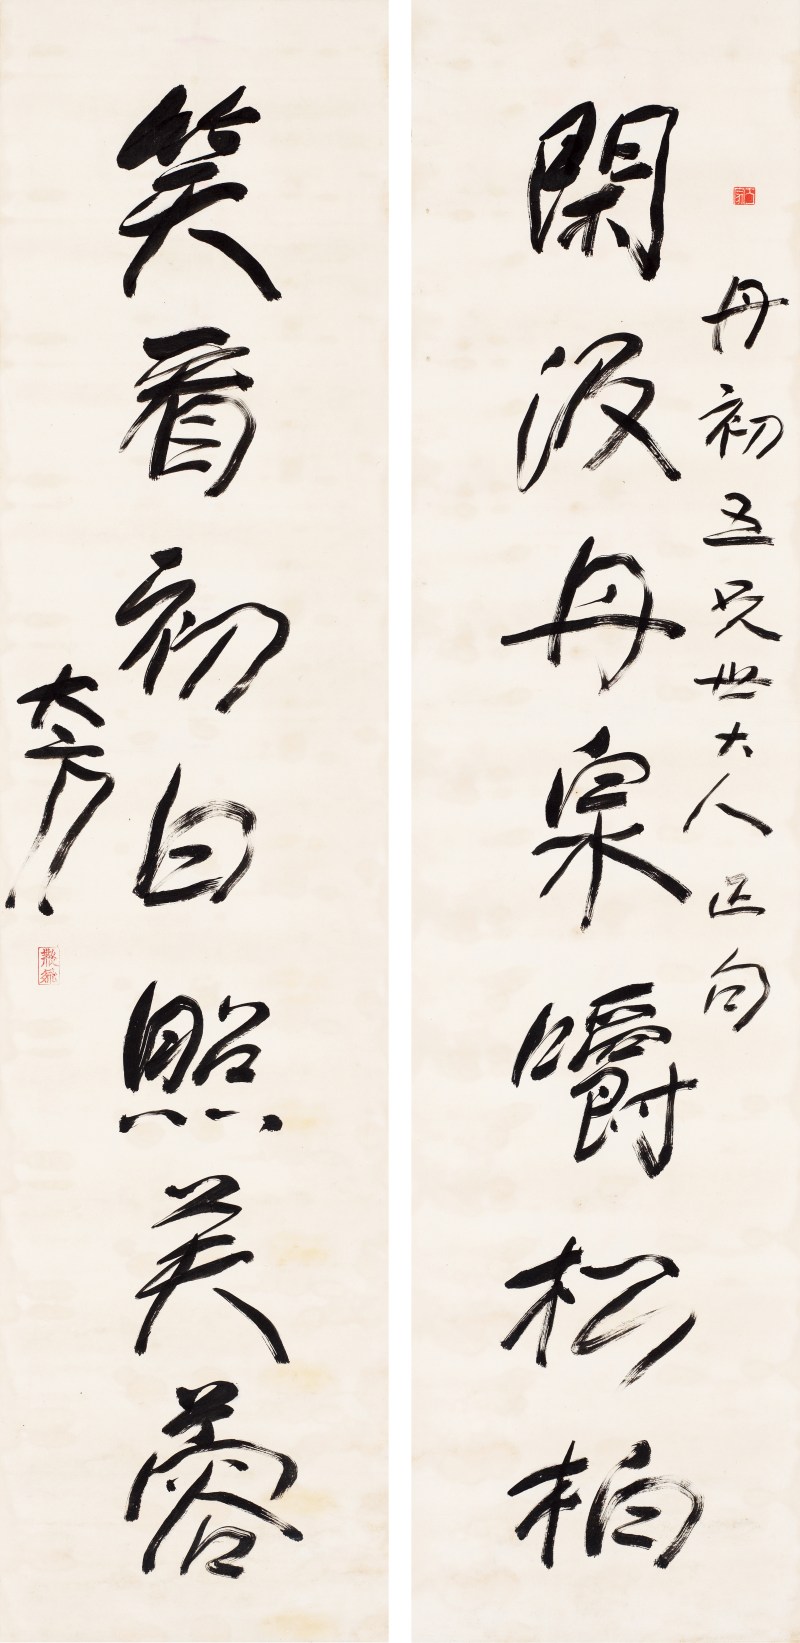 丹初五兄世大人正句
閑汲丹泉嚼松柏
笑看初白照芙蓉
大方